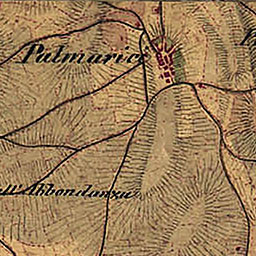 Palmarice
Abbondanza